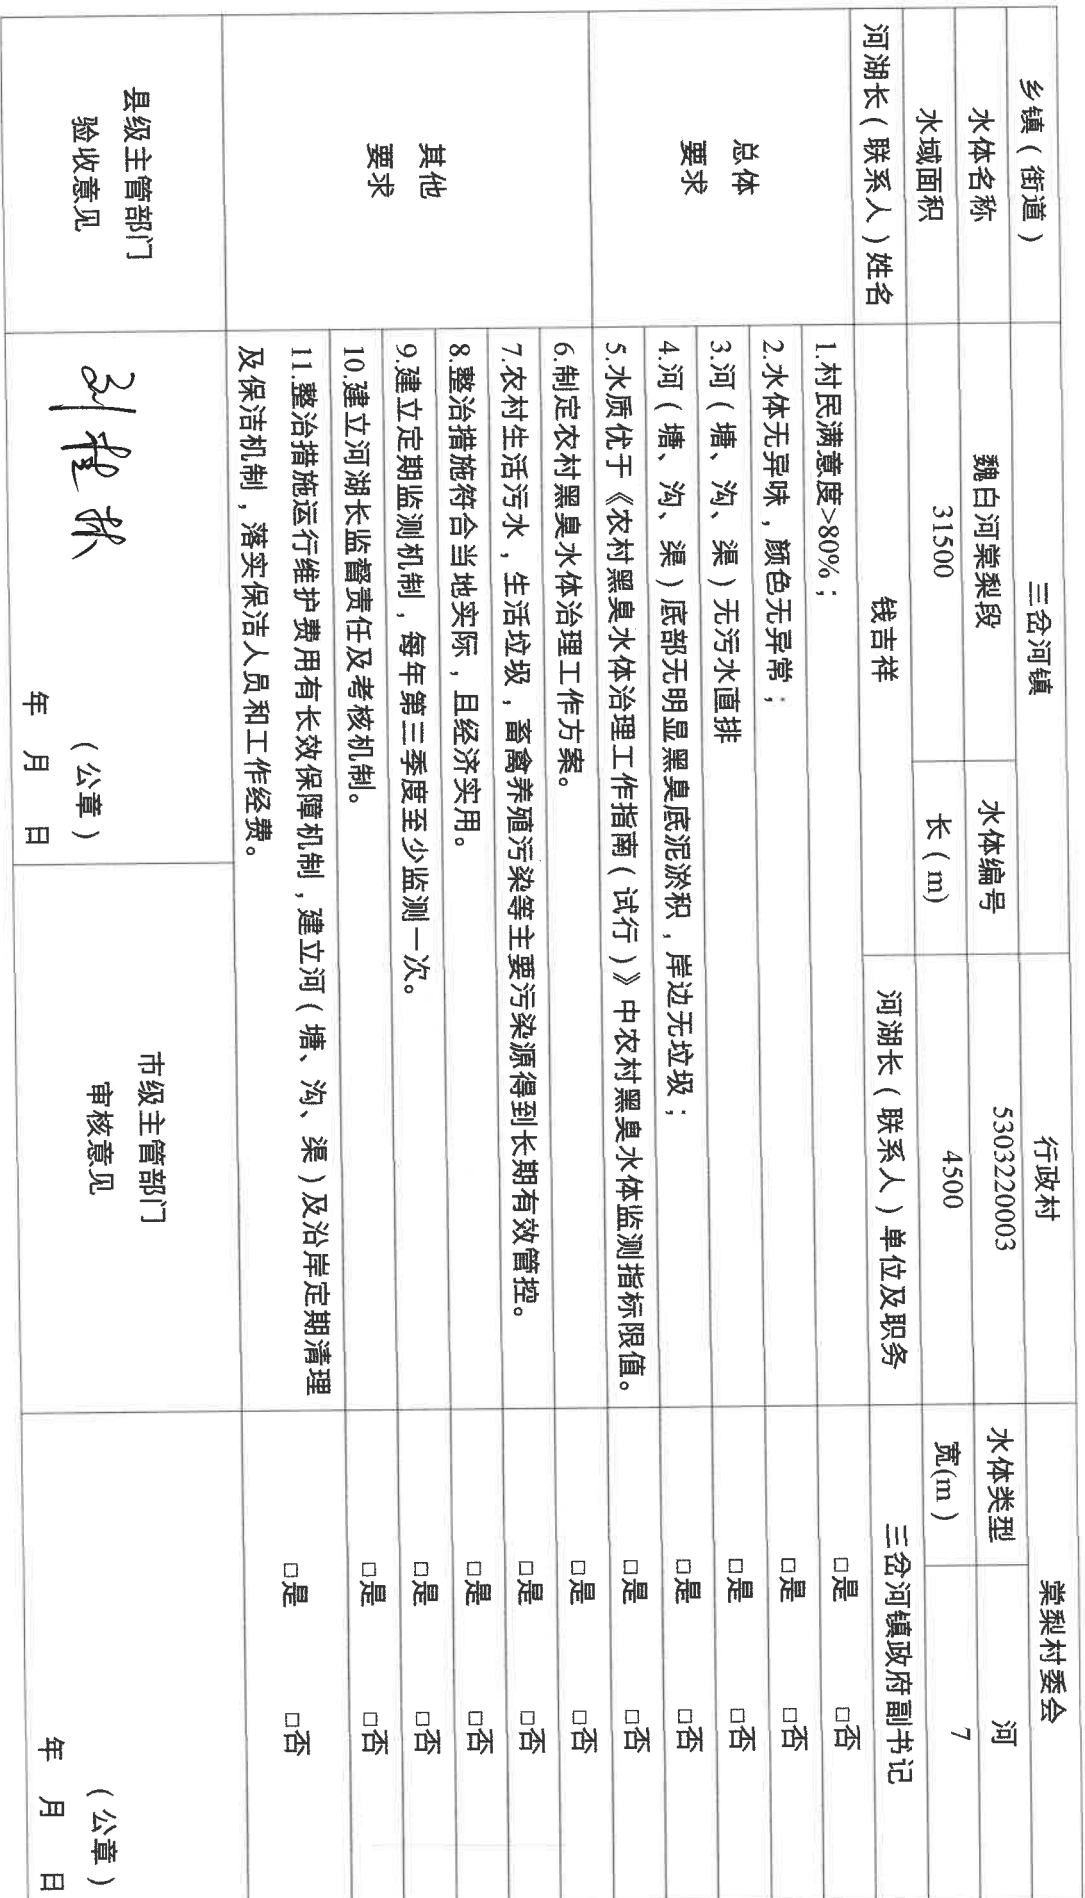 乡镇（街道） 三岔河镇 行政村 棠梨村委会
水体名称 魏白河棠梨段 水体编号 5303220003 水体类型 河
水域面积 31500 长（m） 4500 宽(m） 7
河湖长（联系人）姓名 钱吉祥 河湖长（联系人）单位及职务 三岔河镇政府副书记
总体
要求
1.村民满意度>80%； □是 □否
2.水体无异味，颜色无异常； □是 □否
3.河（塘、沟、渠）无污水直排 □是 □否
4.河（塘、沟、渠）底部无明显黑臭底泥淤积，岸边无垃圾； □是 □否
5.水质优于《农村黑臭水体治理工作指南（试行）》中农村黑臭水体监测指标限值。 □是 □否
其他
要求
6.制定农村黑臭水体治理工作方案。 □是 □否
7.农村生活污水，生活垃圾，畜禽养殖污染等主要污染源得到长期有效管控。 □是 □否
8.整治措施符合当地实际，且经济实用。 □是 □否
9.建立定期监测机制，每年第三季度至少监测一次。 □是 □否
10.建立河湖长监督责任及考核机制。 □是 □否
11.整治措施运行维护费用有长效保障机制，建立河（塘、沟、渠）及沿岸定期清理 □是 □否
及保洁机制，落实保洁人员和工作经费。
县级主管部门
验收意见
（公章）
年 月 日
市级主管部门
审核意见
（公章）
年 月 日